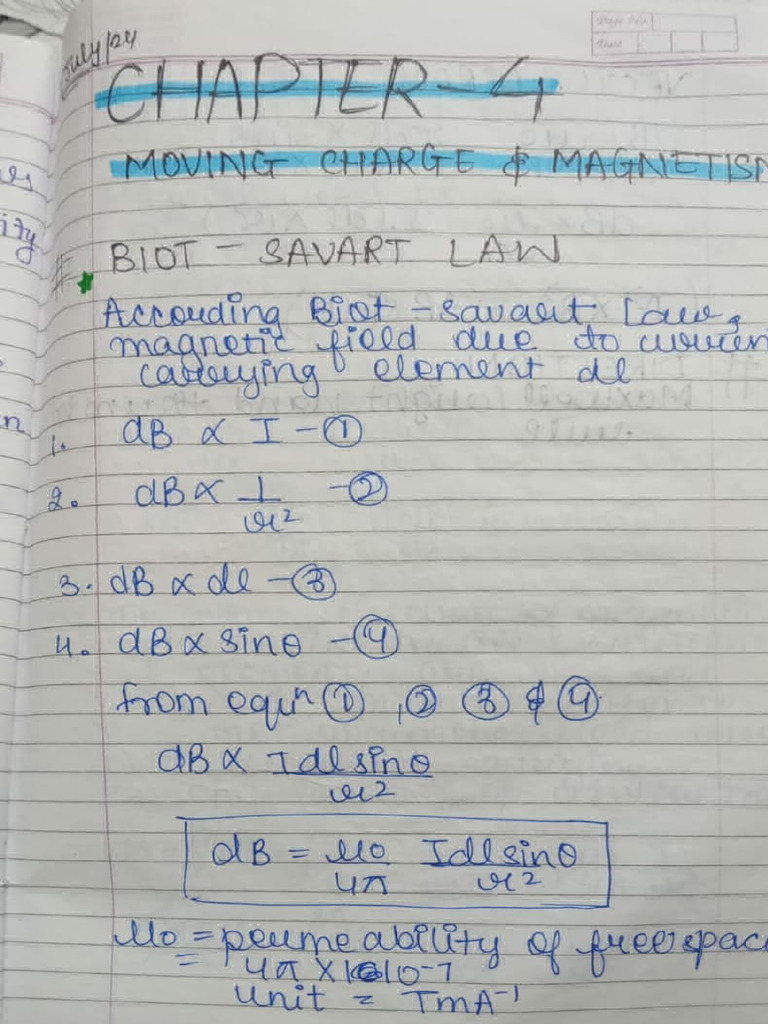 July/24
Page No.
Date
CHAPTER-4
MOVING CHARGE & MAGNETISM
# BIOT - SAVART LAW
Accouding Biot - savart Law,
magnetic field due to curren
carrying element dl
1. dB ∝ I - ①
2. dB ∝ 1/r² - ②
3. dB ∝ dl - ③
4. dB ∝ sinθ - ④
from equn ① , ② ③ & ④
dB ∝ Idlsinθ/r²
dB = μ0/4π Idlsinθ/r²
μ0 = permeability of free spac
= 4π × 10⁻⁷
unit = TmA⁻¹
ity
n